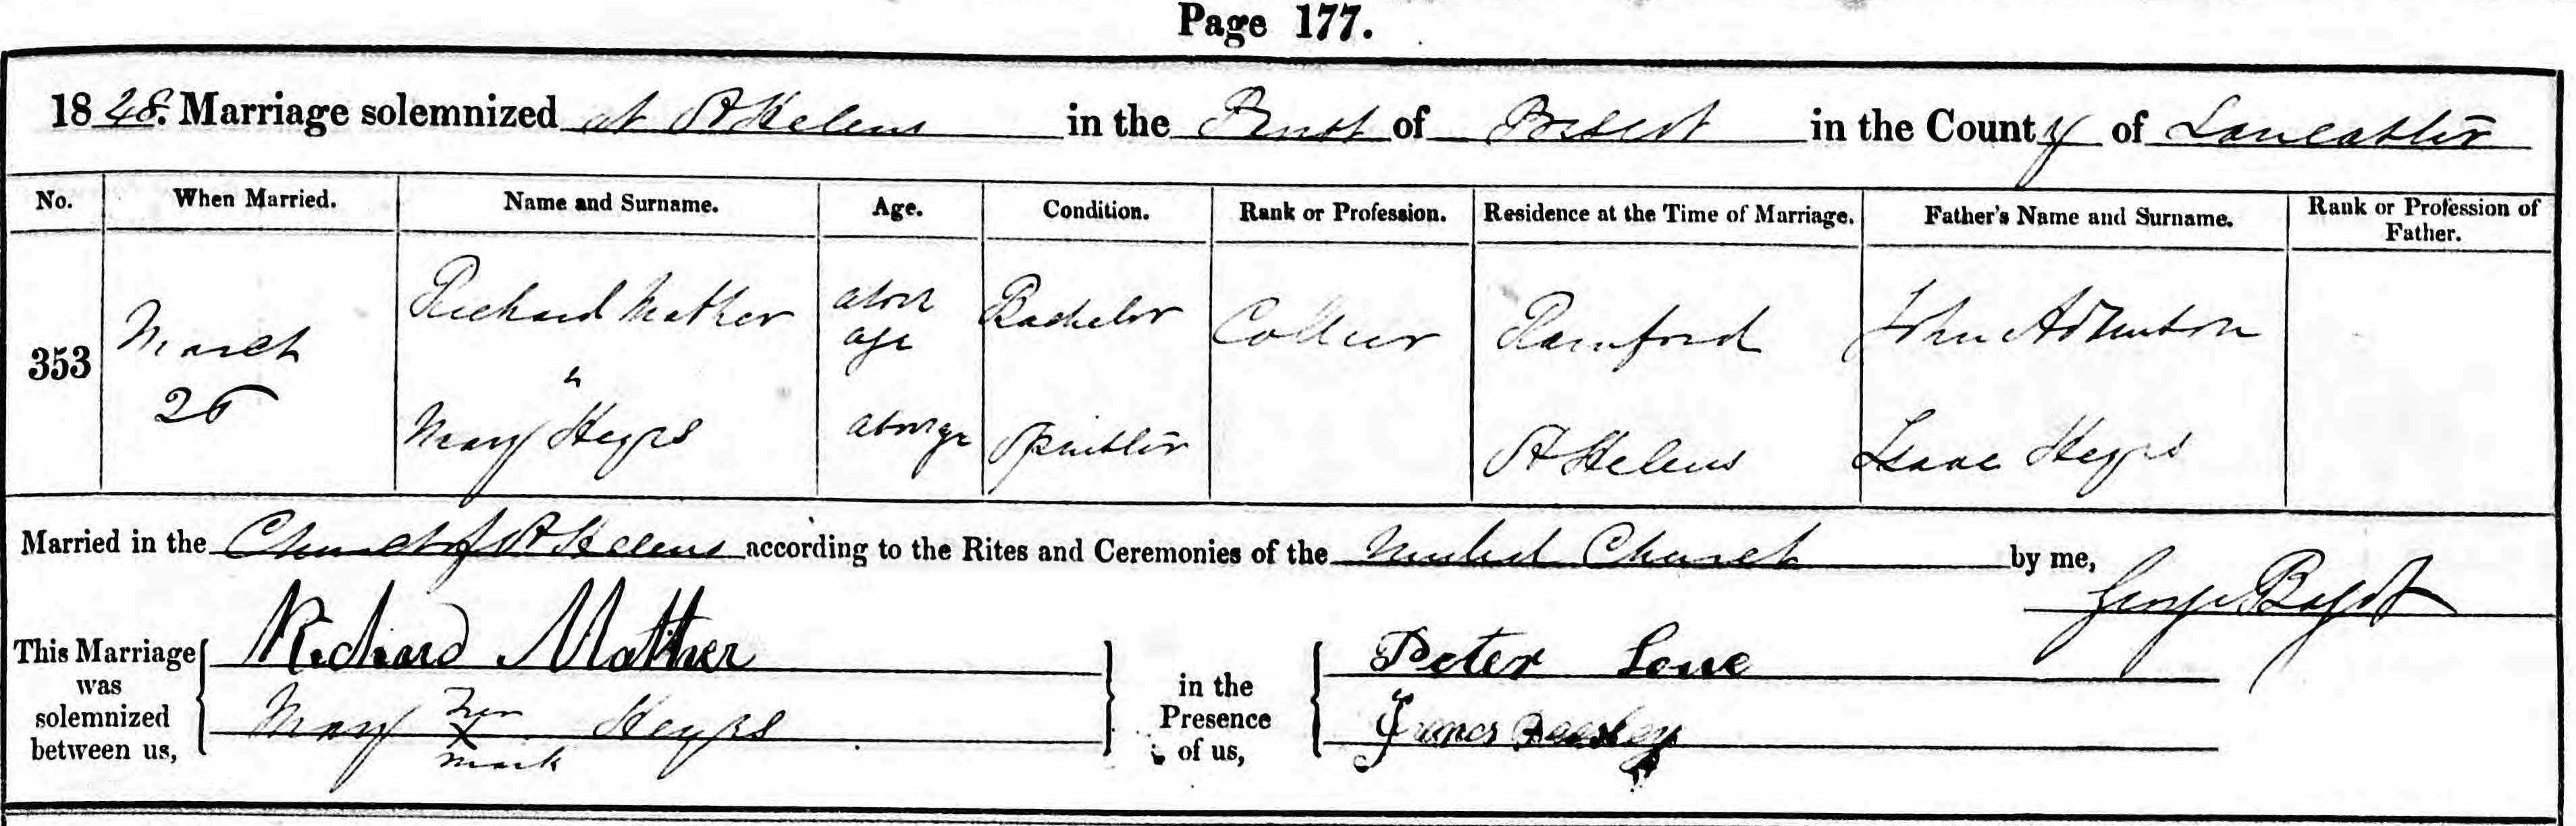 Page 177.
1848. Marriage solemnized at St Helens in the of Prescot in the County of Lancaster
No. When Married. Name and Surname. Age. Condition. Rank or Profession. Residence at the Time of Marriage. Father's Name and Surname. Rank or Profession of Father.
353 March Richard Mather above age Bachelor Collier Rainford John
Mary Heyes St Helens Isaac Heyes
Spinster
Married in the Church of St Helens according to the Rites and Ceremonies of the Church by me, George
This Marriage was solemnized between us, Richard Mather in the Presence of us, Peter
Mary her X mark Heyes James